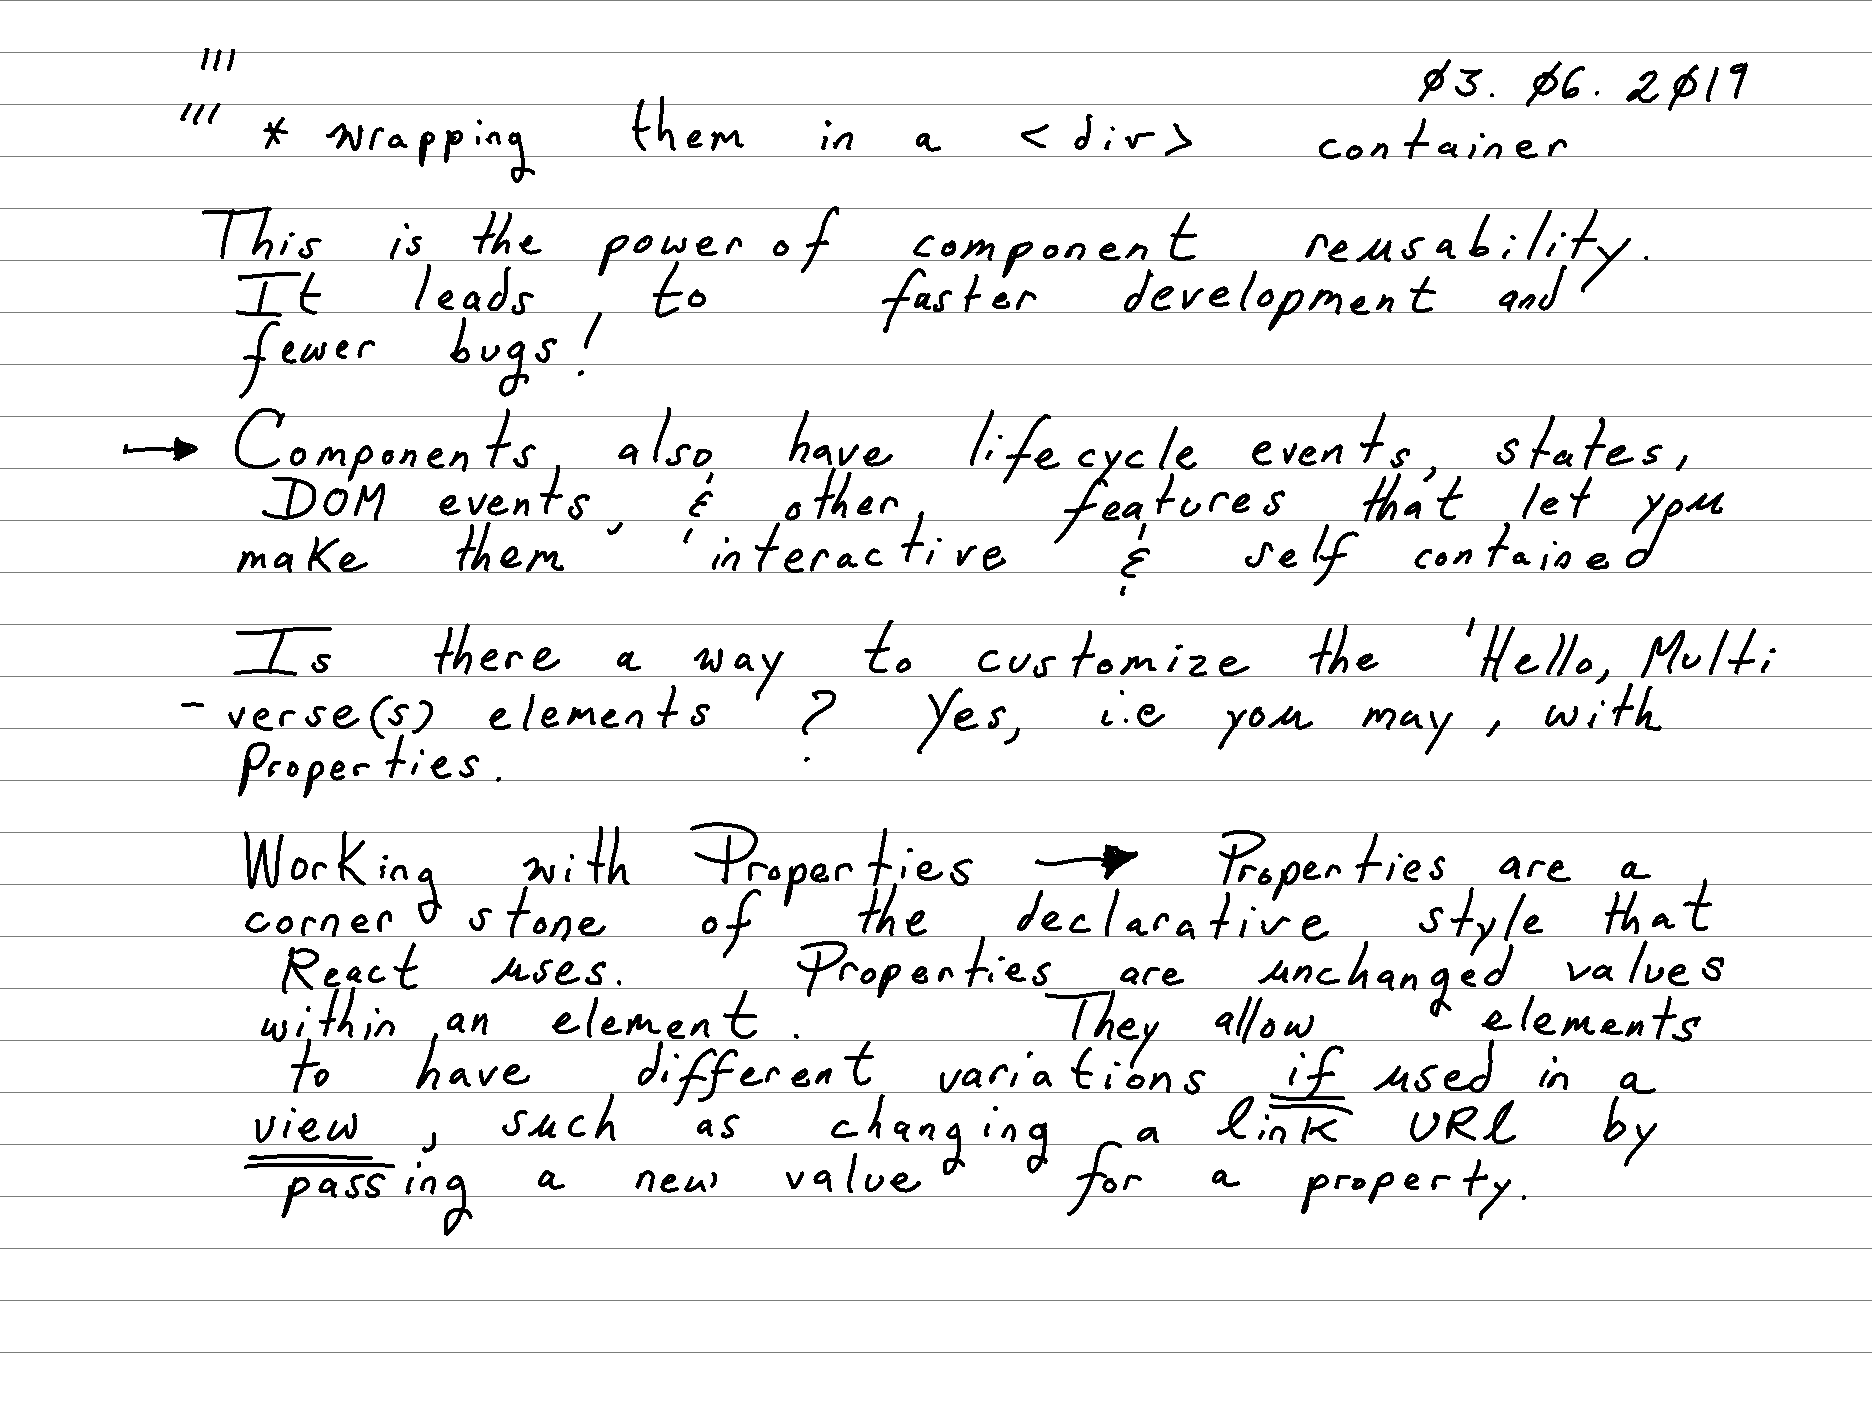 '''
03. 06. 2019
''' * wrapping them in a <div> container
This is the power of component reusability.
It leads to faster development and
fewer bugs!
→ Components, also have lifecycle events, states,
DOM events, & other features that let you
make them interactive & self contained
Is there a way to customize the 'Hello, Multi
-verse(s) elements ? Yes, i.e you may, with
Properties.
Working with Properties → Properties are a
corner stone of the declarative style that
React uses. Properties are unchanged values
within an element. They allow elements
to have different variations if used in a
view, such as changing a link URL by
passing a new value for a property.